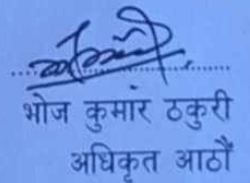 भोज कुमार ठकुरी
अधिकृत आठौं